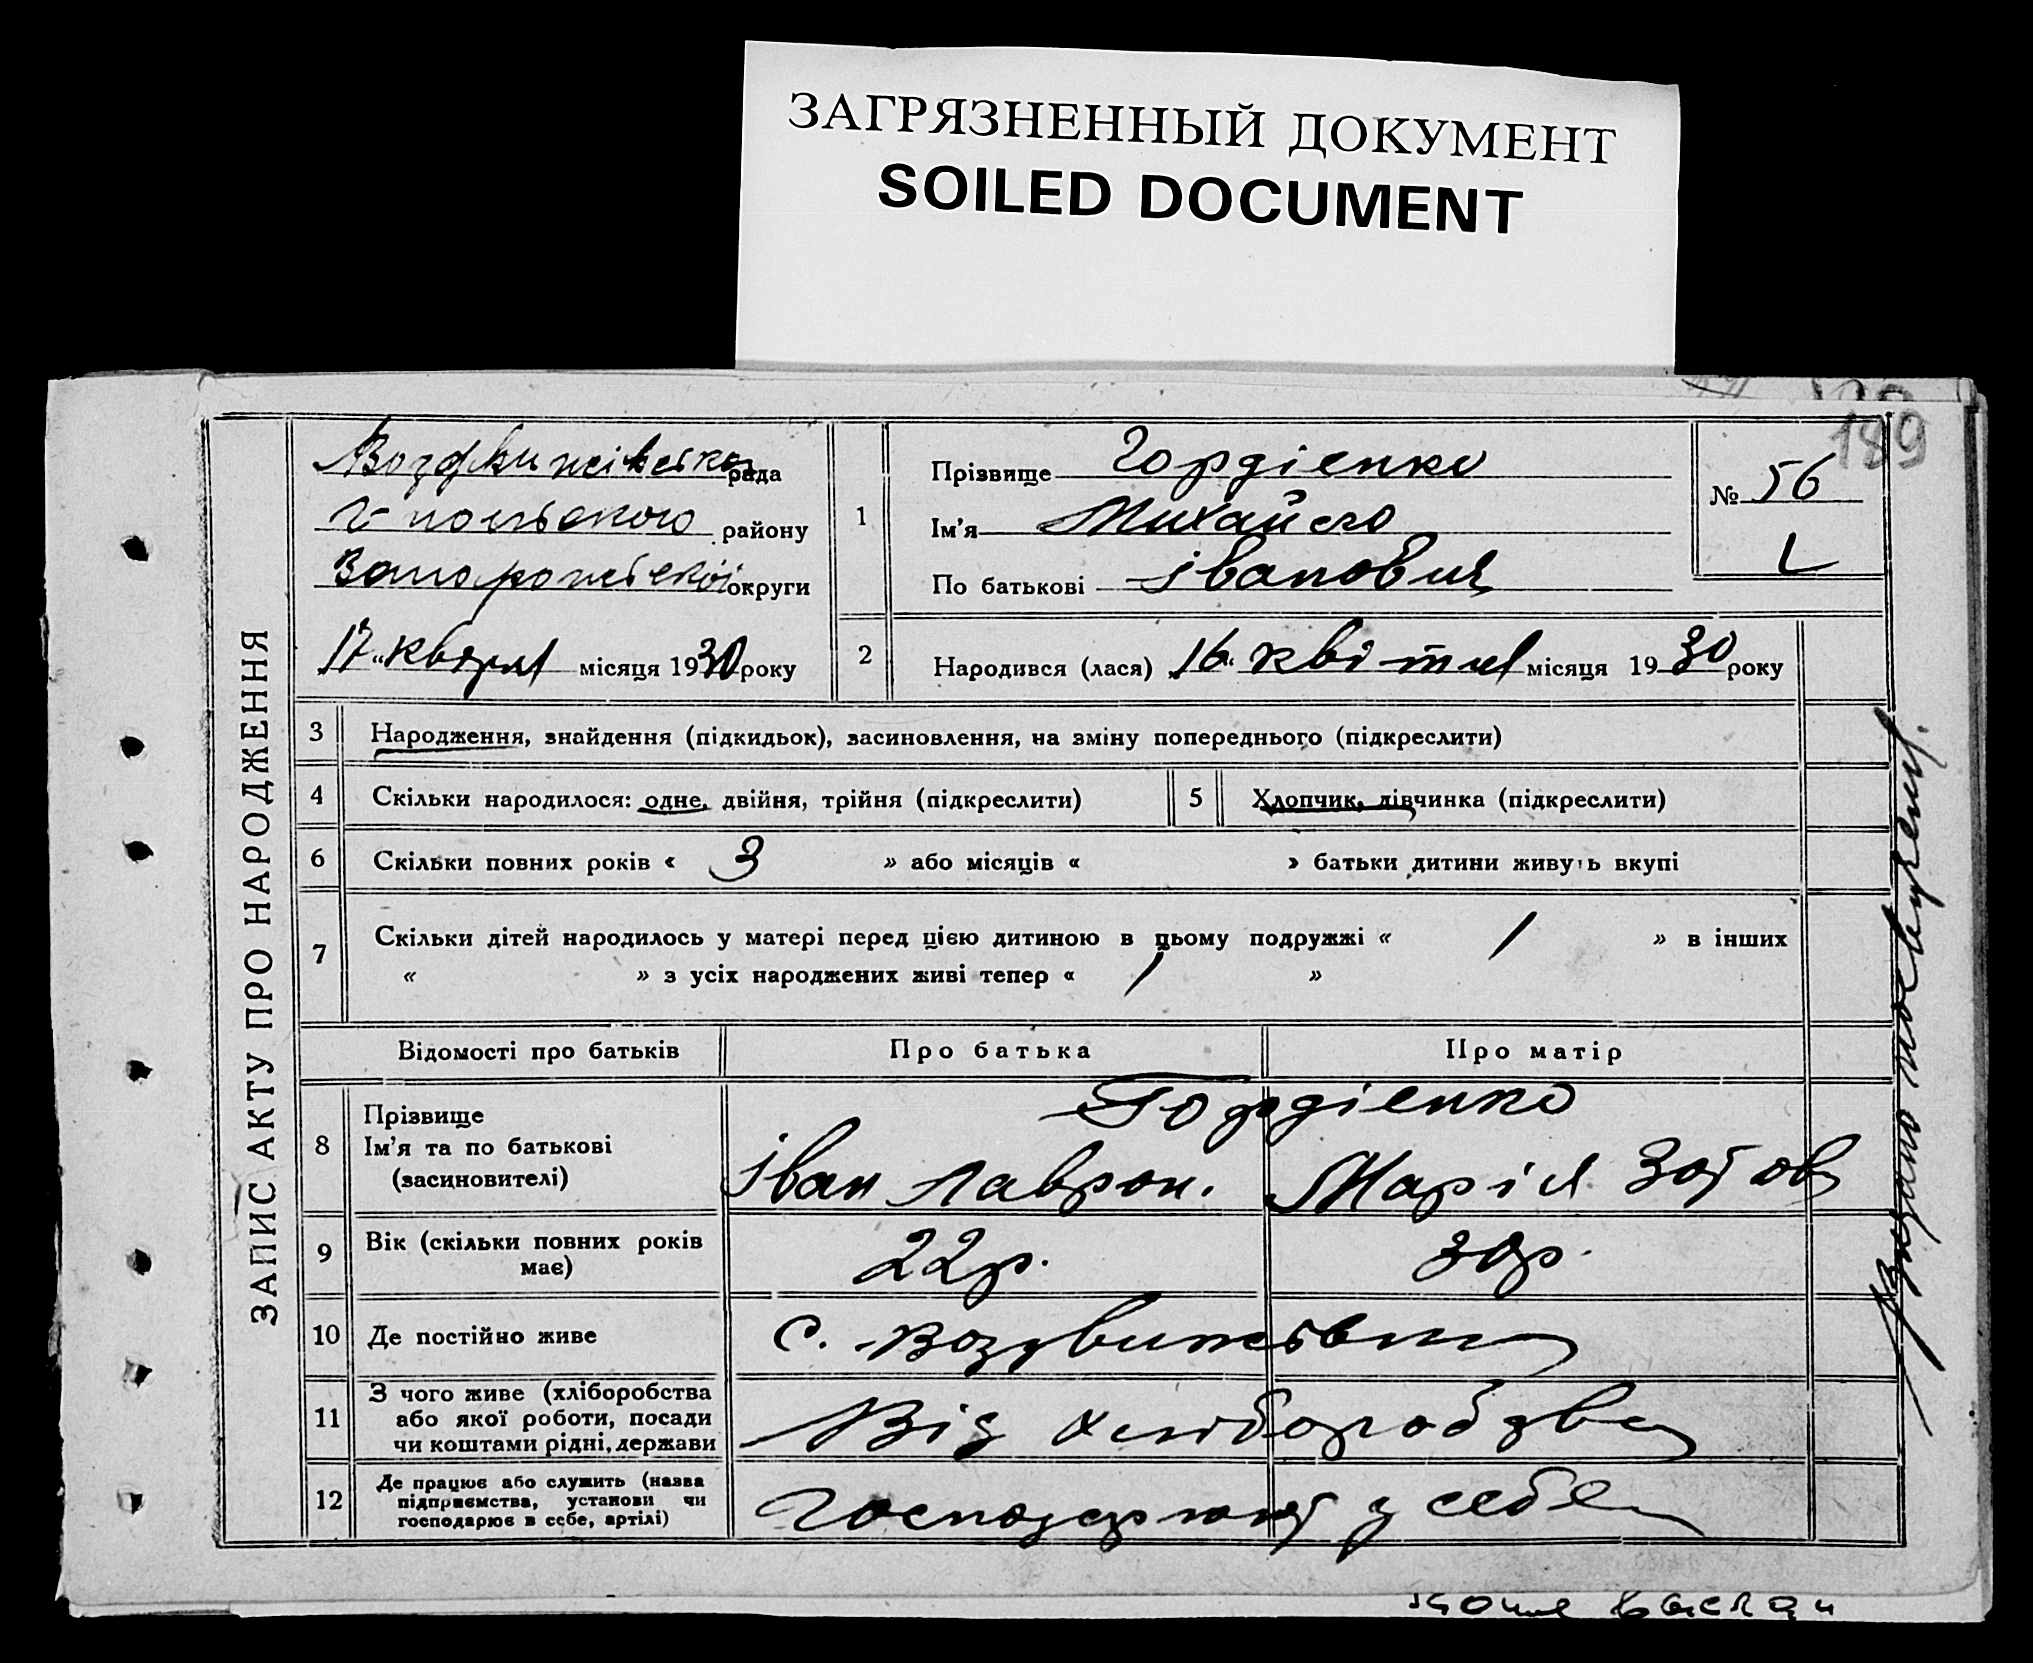 ЗАГРЯЗНЕННЫЙ ДОКУМЕНТ
SOILED DOCUMENT
189
ЗАПИС АКТУ ПРО НАРОДЖЕННЯ
Воздвижівська рада
Г-польського району
Запорожської округи
„17“ квітня місяця 1930 року
1
Прізвище Гордіенко
Ім'я Михайло
По батькові Іванович
№ 56
2
Народився (лася) „16“ квітня місяця 1930 року
3 Народження, знайдення (підкидьок), засиновлення, на зміну попереднього (підкреслити)
4 Скільки народилося: одне, двійня, трійня (підкреслити)
5 Хлопчик, дівчинка (підкреслити)
6 Скільки повних років « 3 » або місяців « » батьки дитини живуть вкупі
7 Скільки дітей народилось у матері перед цією дитиною в цьому подружжі « 1 » в інших
« » з усіх народжених живі тепер « 1 »
Відомості про батьків Про батька Про матір
8 Прізвище
Ім'я та по батькові
(засиновителі)
Гордіенко
Іван Лаврон. Марія Зотов
9 Вік (скільки повних років
має)
22р. 30р.
10 Де постійно живе
с. Воздвижівка
11 З чого живе (хліборобства
або якої роботи, посади
чи коштами рідні, держави
Від хліборобства
12 Де працює або служить (назва
підприємства, установи чи
господарює в себе, артілі)
Господарюют у себе